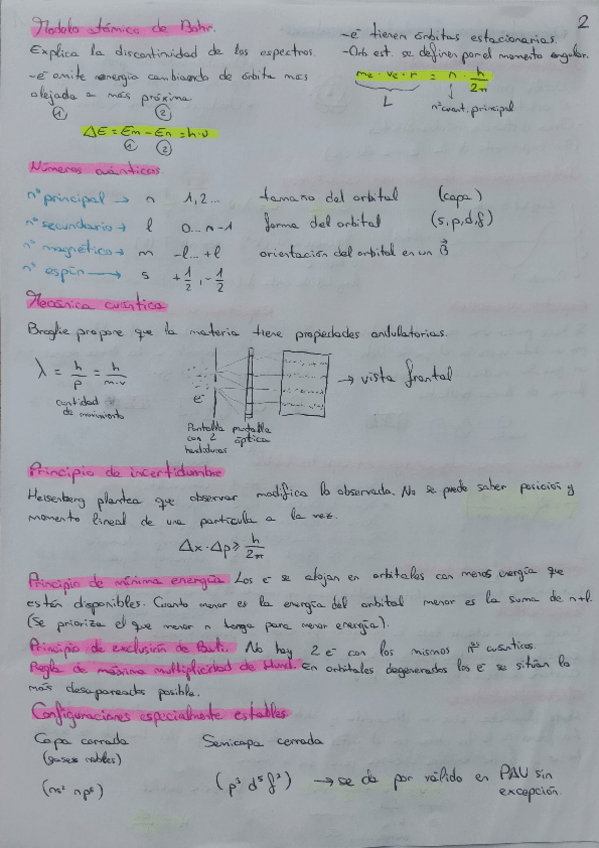 2
Modelo atómico de Bohr.
Explica la discontinuidad de los espectros.
-e⁻ emite energía cambiando de órbita más
alejada a más próxima
① ②
ΔE = Em - En = h·ν
① ②
-e⁻ tienen órbitas estacionarias.
-Orb est. se definen por el momento angular.
me · ve · r = n · h/2π
L
nº cuant. principal
Números cuánticos.
nº principal → n 1,2... tamaño del orbital (capa)
nº secundario → l 0...n-1 forma del orbital (s,p,d,f)
nº magnético → m -l...+l orientación del orbital en un B⃗
nº espín → s +1/2, -1/2
Mecánica cuántica
Broglie propone que la materia tiene propiedades ondulatorias.
λ = h/p = h/m·v
cantidad
de movimiento
e⁻
Pantalla
con 2
hendiduras
pantalla
óptica
→ vista frontal
Principio de incertidumbre
Heisenberg plantea que observar modifica lo observado. No se puede saber posición y
momento lineal de una partícula a la vez.
Δx · Δp ≥ h/2π
Principio de mínima energía Los e⁻ se alojan en orbitales con menos energía que
estén disponibles. Cuanto menor es la energía del orbital menor es la suma de n+l.
(Se prioriza el que menor n tenga para menor energía).
Principio de exclusión de Pauli. No hay 2 e⁻ con los mismos nº cuánticos.
Regla de máxima multiplicidad de Hund. En orbitales degenerados los e⁻ se sitúan lo
más desapareados posible.
Configuraciones especialmente estables
Capa cerrada
(gases nobles)
(ns² np⁶)
Semicapa cerrada
(p³ d⁵ f⁷) → se da por válido en PAU sin
excepción.